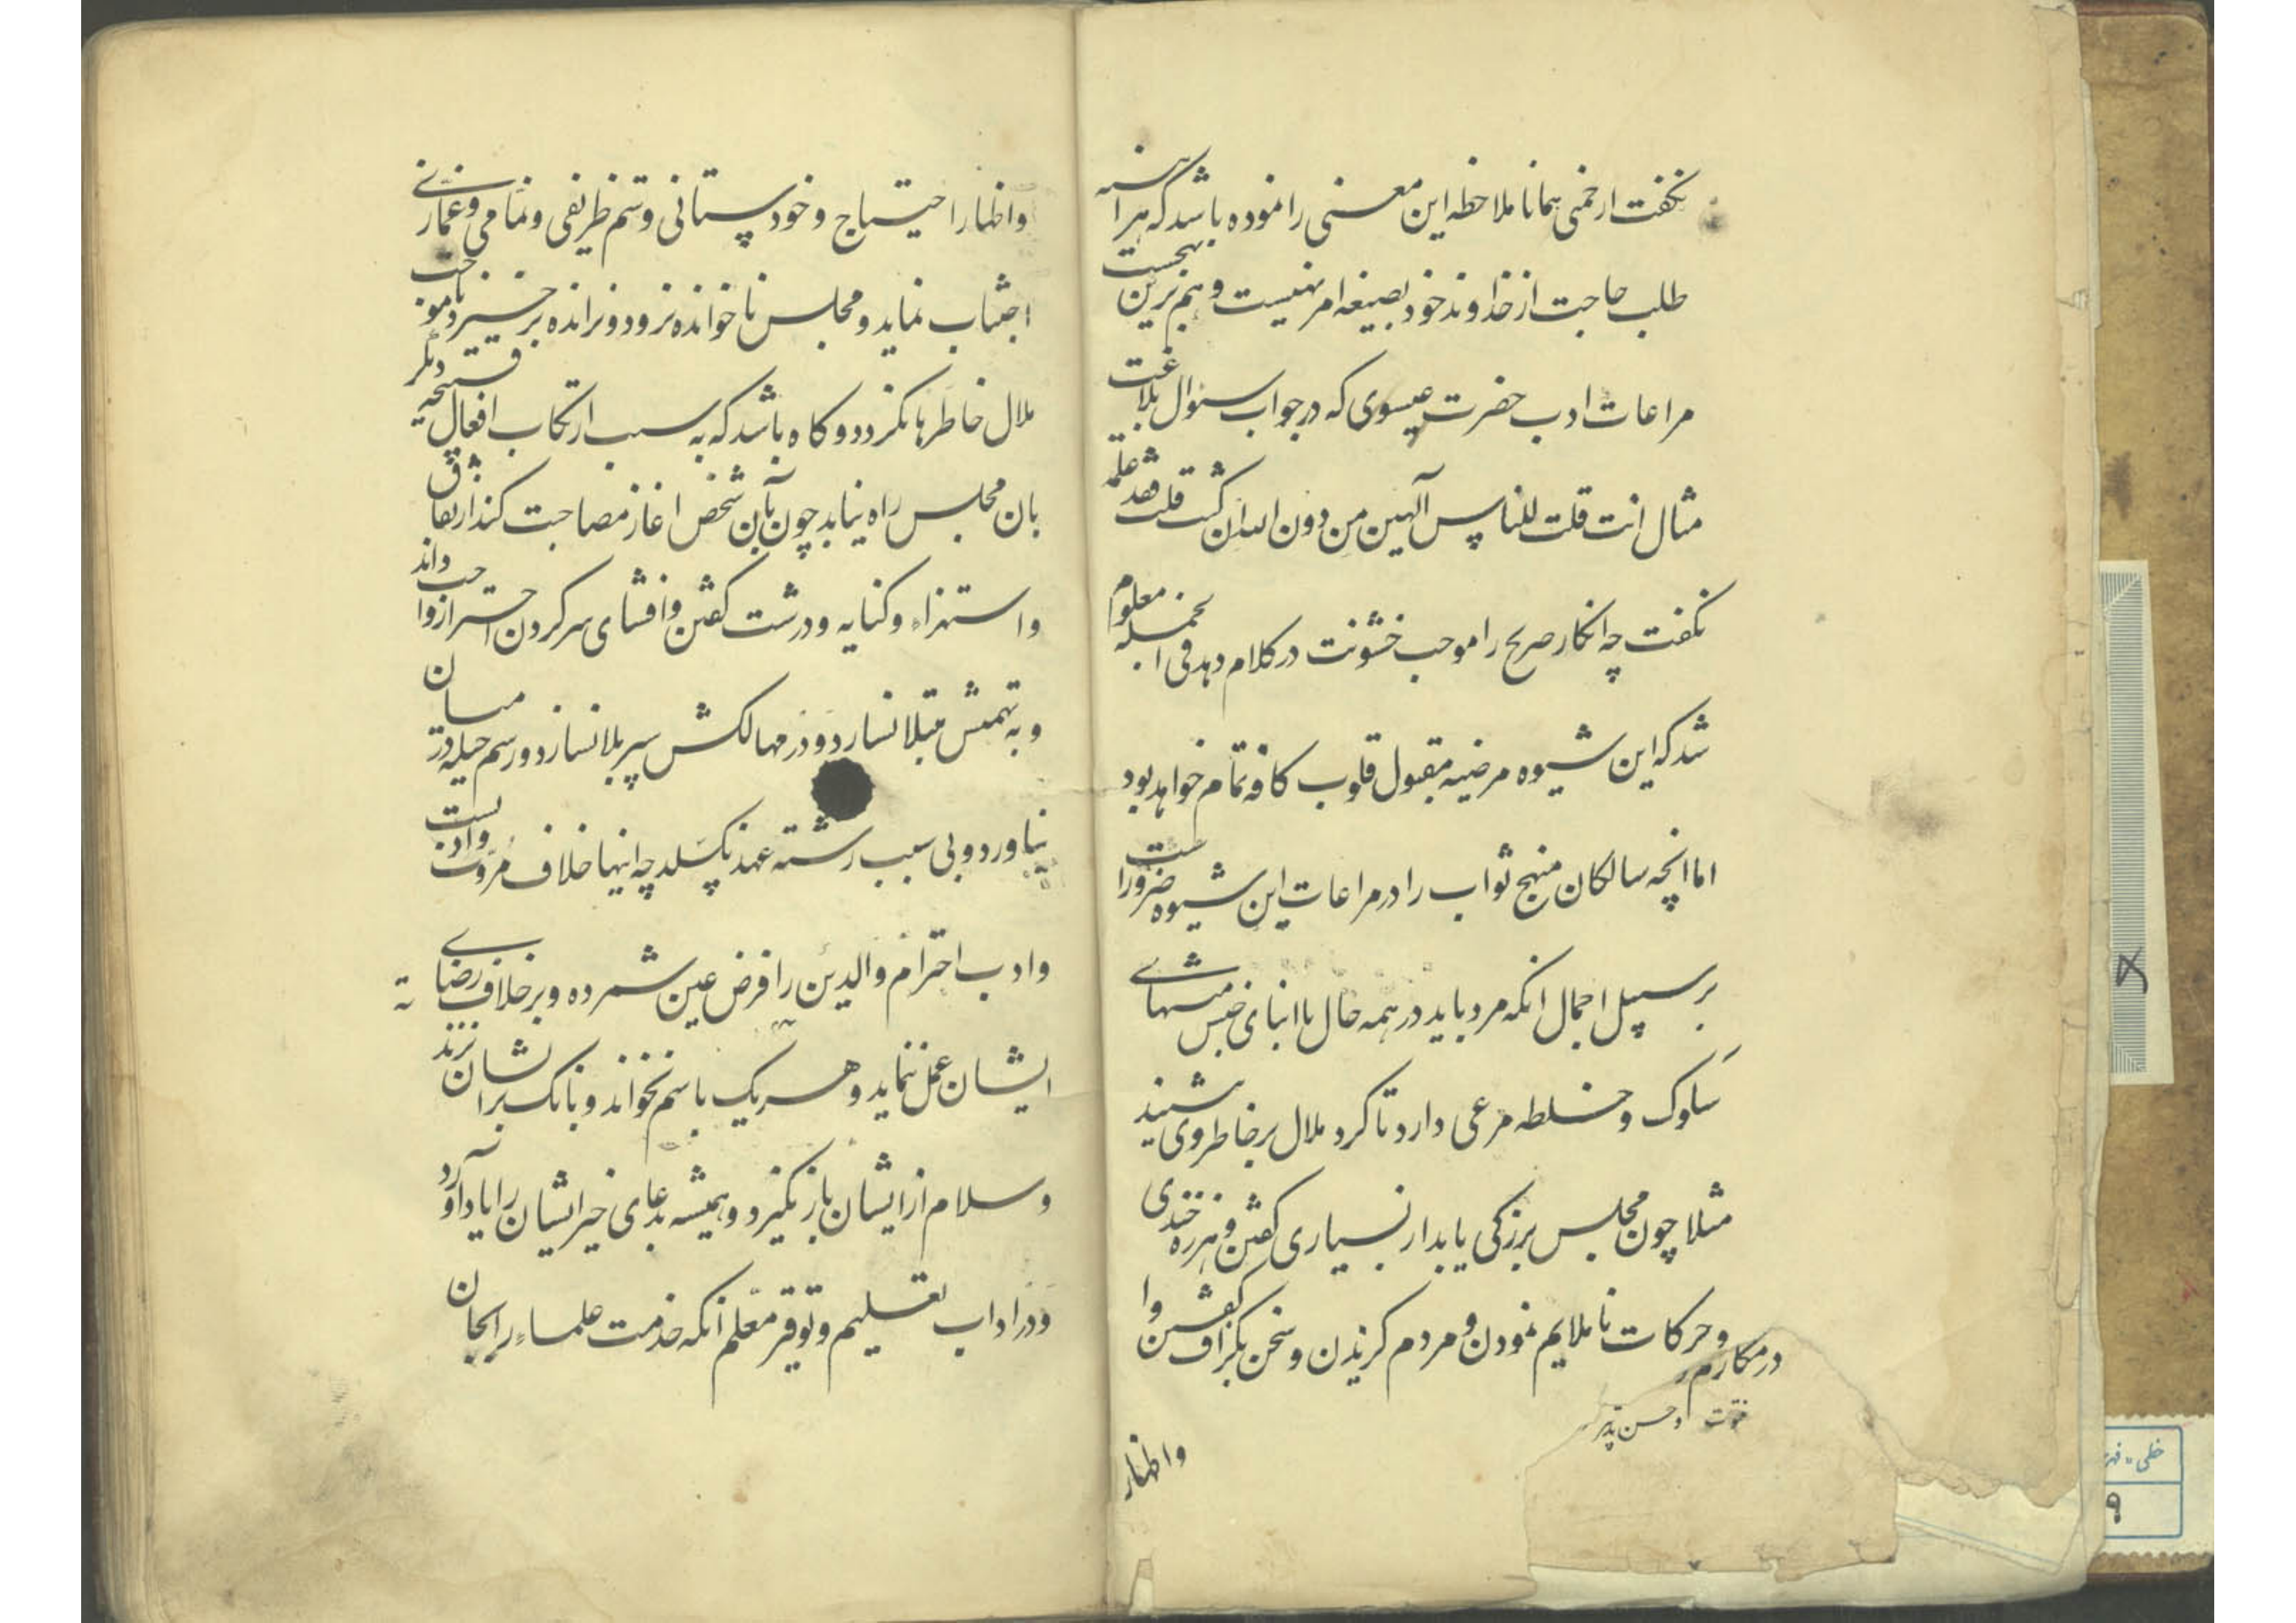 نکفت ارحمنی همانا ملاحظه این معنی را نموده باشد که هر آینه
طلب حاجت از خداوند خود بصیغه امر نهیست و هم برین نهجست
مراعات ادب حضرت عیسوی که در جواب سئوال بلاغت
مثال انت قلت للناس آلهین من دون الله ان کنت قلت فقد علمته
نکفت چه انکار صریح را موجب خشونت در کلام دهد فی الجمله معلوم
شد که این شیوه مرضیه مقبول قلوب کافه تمام خواهد بود
اما انچه سالکان منهج ثواب را در مراعات این شیوه ضرور است
بر سبیل اجمال انکه مرد باید در همه حال با ابنای جنس منتهای
سلوک و خلطه مرعی دارد تا کرد ملال بر خاطر وی ننشیند
مثلا چون مجلس بزرکی یابد از بسیاری کفتن و هرزه خندی
و حرکات ناملایم نمودن و مردم کزیدن و سخن بکزاف کفتن وا
در مکارم
فتوت و حسن پذیر
واظهار
واظهار احتیاج و خودستانی و ستم ظریفی و نمامی و غمازی
اجتناب نماید و مجلس ناخوانده نرود و نرانده برخیزد تا موجب
ملال خاطرها نکردد و کاه باشد که به سبب ارتکاب افعال قبیحه دیکر
بان مجلس راه نیابد چون بآن شخص اغاز مصاحبت کند از نفاق
و استهزاء و کنایه و درشت کفتن و افشای سر کردن احتراز واجب داند
و به تهمتش مبتلا نسازد و در مهالکش سپر بلا نسازد و رسم حیله در میان
نیاورد و بی سبب رشته عهد نکسلد چه اینها خلاف مروت و ادبست
و ادب احترام والدین را فرض عین شمرده و برخلاف رضای
ایشان عمل ننماید و هریک باسم نخواند و بانک برایشان نزند
و سلام از ایشان باز نکیرد و همیشه بدعای خیر ایشان را یاد آورد
و در اداب تعلیم و توقیر معلم انکه خدمت علماء را بجان